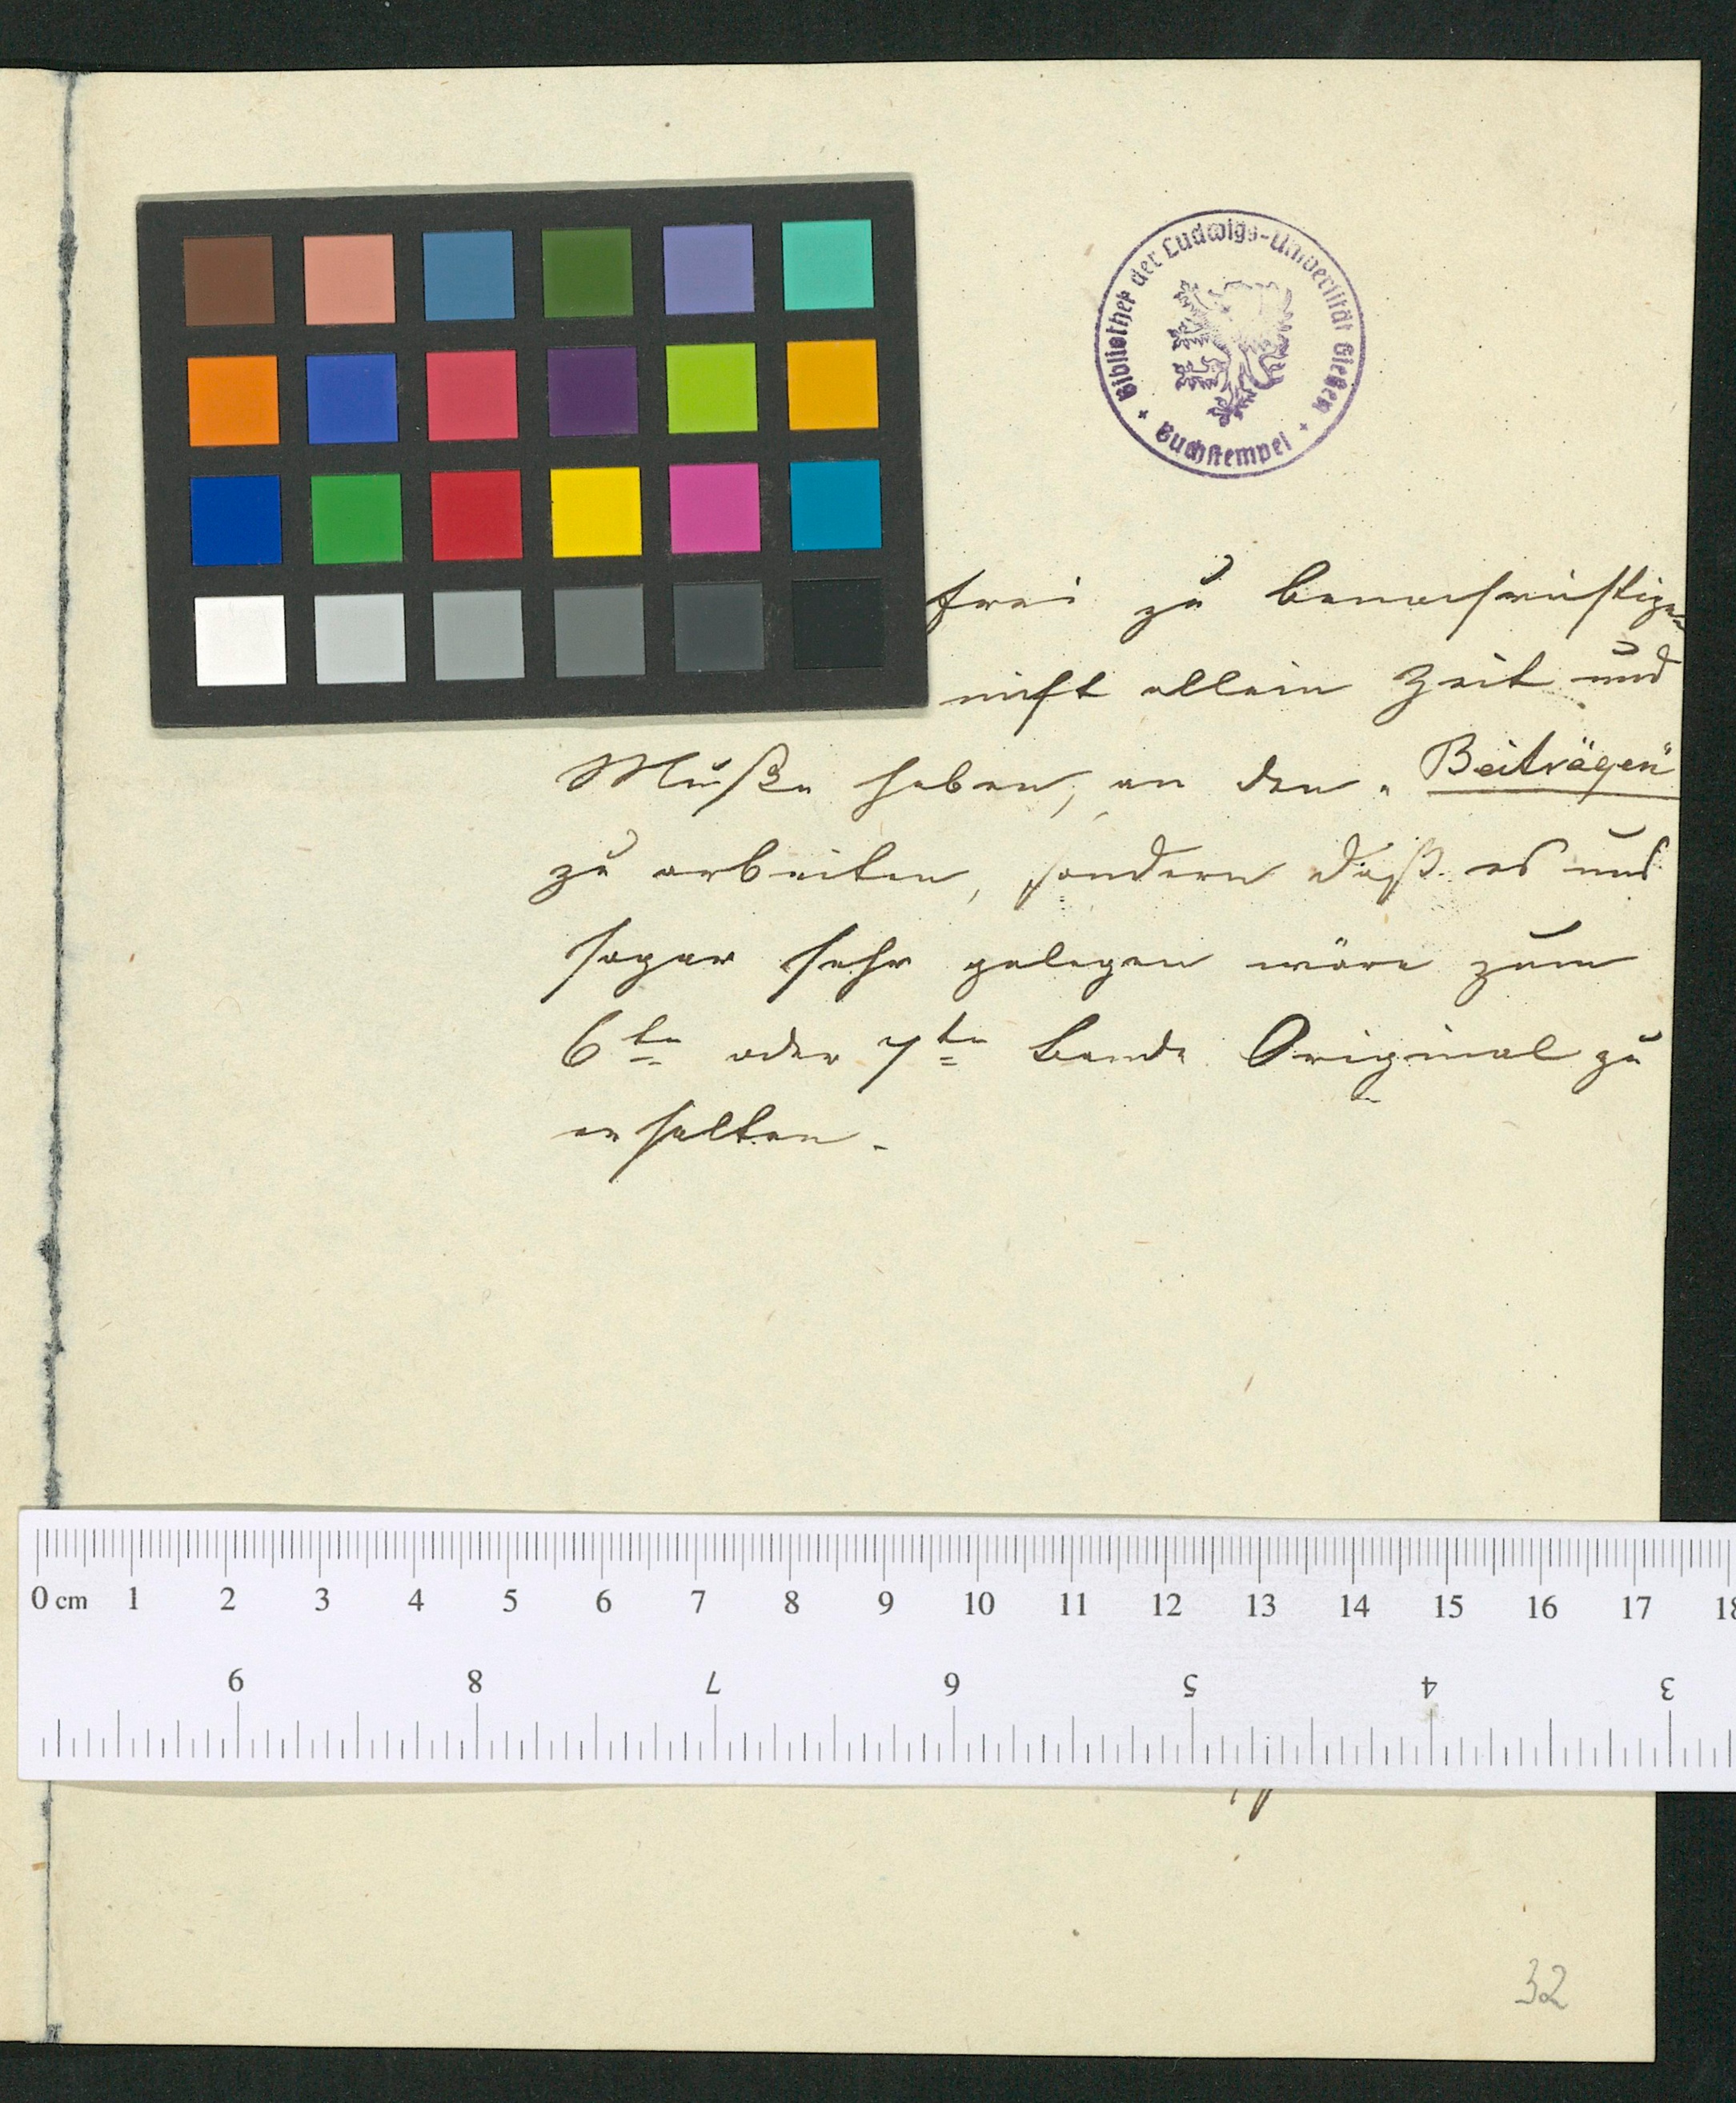 Bibliothek der Ludwigs-Universität Gießen
Buchstempel
frei zu benachrichtigen
nicht allein Zeit und
Muße haben, an den „Beiträgen“
zu arbeiten, sondern daß es uns
sogar sehr gelegen wäre zum
6ten oder 7ten Bande Original zu
erhalten.
0 cm 1 2 3 4 5 6 7 8 9 10 11 12 13 14 15 16 17 18
9 8 7 6 5 4 3
32